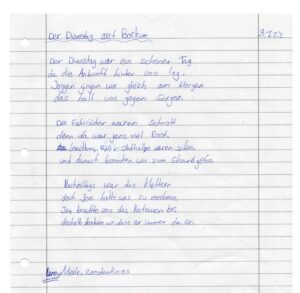 Der Dienstag auf Borkum
8.7.22
Der Dienstag war ein schöner Tag
da die Ankunft hinter uns lag.
Joggen gingen wir gleich am Morgen
das half uns gegen Sorgen.
Die Fahrräder waren Schrott
denn da war ganz viel Rost.
Leuchttürme, waren schön,
und danach konnten wir zum Strand gehn.
Nachmittags war das Klettern
doch Joe hatte was zu meckern.
Joe brachte uns das bei
deshalb denken wir dass er immer da sei
Marie, Konstantinos